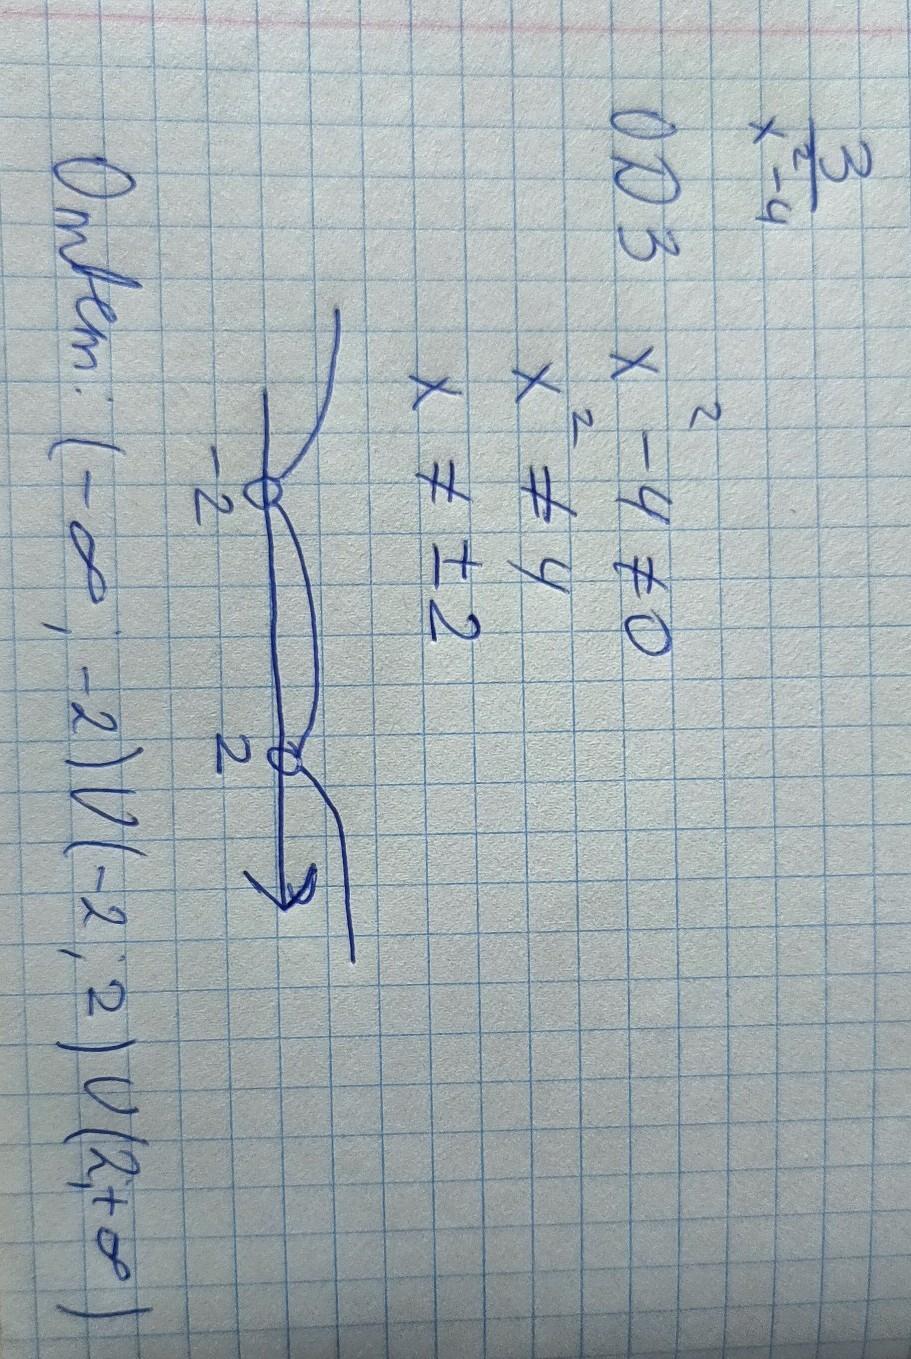 3
x²-4
ОДЗ x²-4≠0
x²≠4
x≠±2
-2 2
Ответ: (-∞, -2)∪(-2, 2)∪(2,+∞)